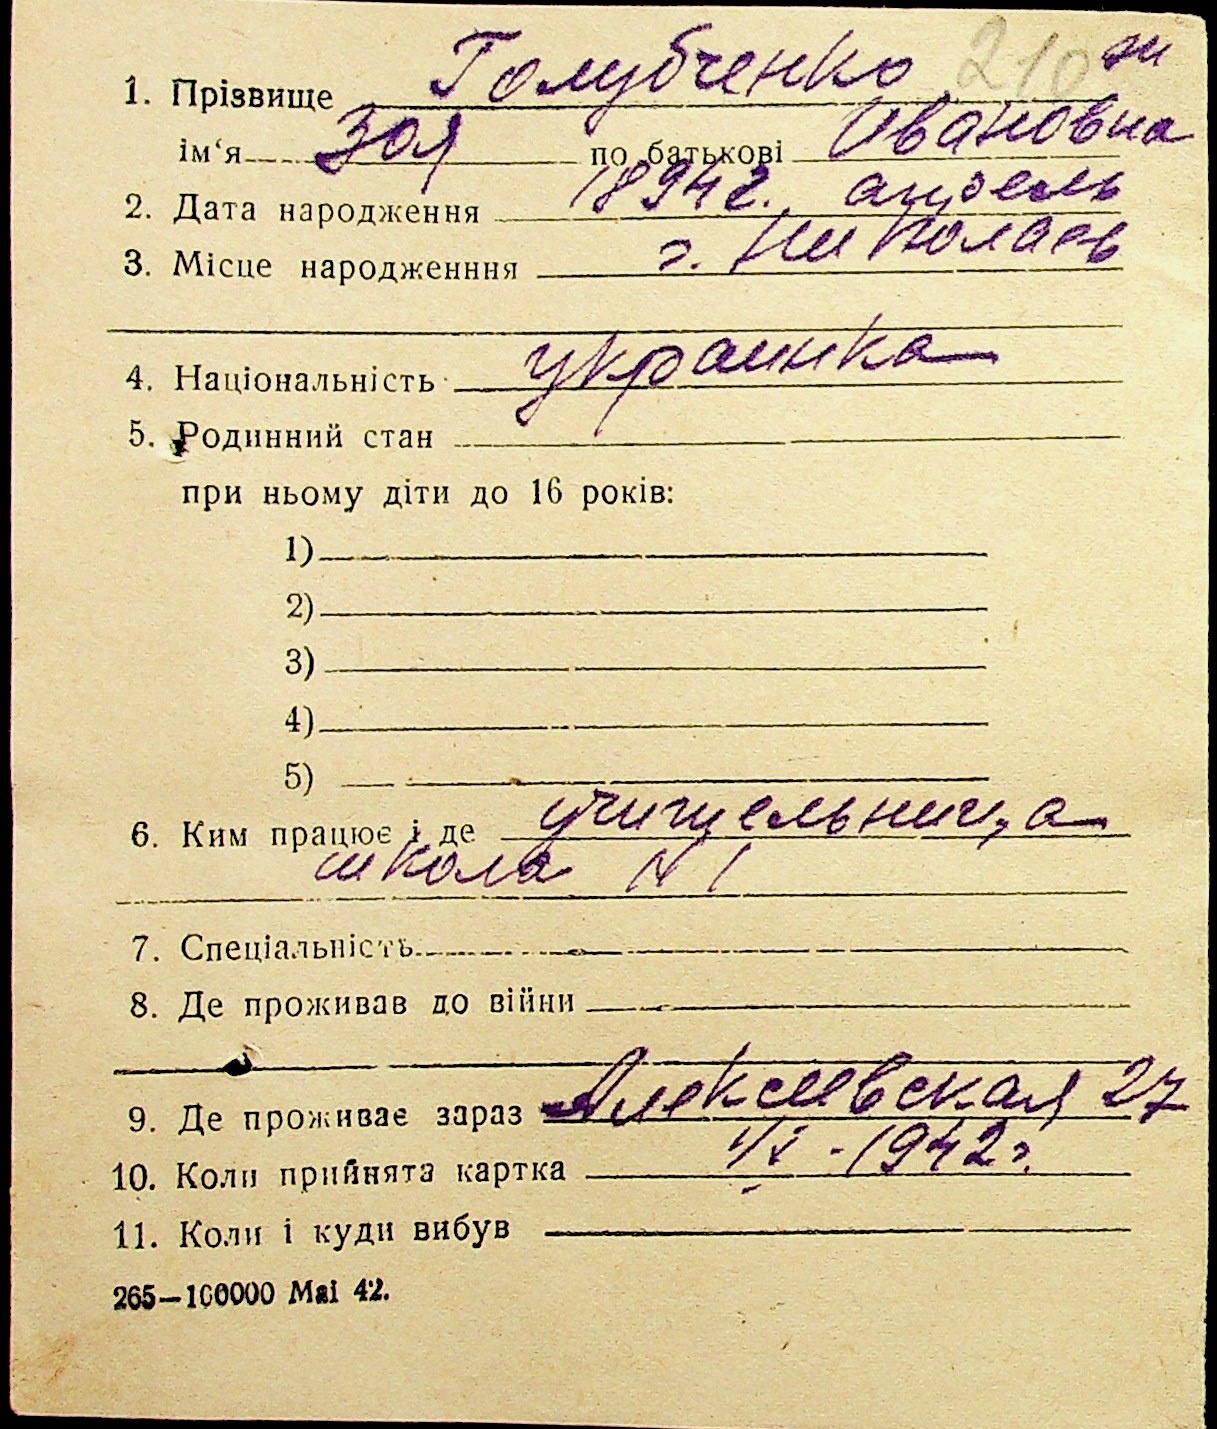 210 зи
1. Прізвище Голубченко
ім‘я Зоя по батькові Ивановна
2. Дата народження 1894 г. апрель
3. Місце народженння г. Николаев
4. Національність украинка
5. Родинний стан
при ньому діти до 16 років:
1)
2)
3)
4)
5)
6. Ким працює і де учительница
школа N 1
7. Спеціальність
8. Де проживав до війни
9. Де проживає зараз Алексеевская 27
10. Коли прийнята картка 1/X - 1942 г.
11. Коли і куди вибув
265—100000 Mai 42.